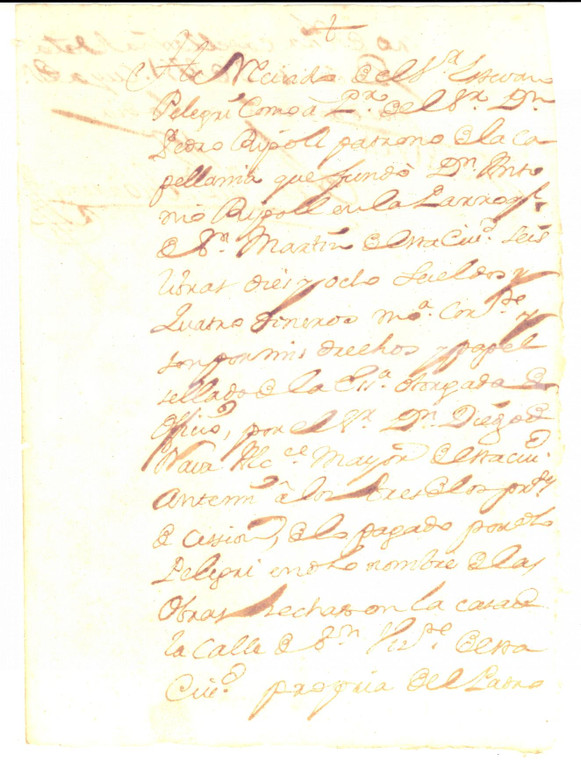 +
de el Sr. Estevan
Pelegri Como a Pr. de el Sr. Dn.
Pedro Ripoll patrono de la Ca
pellania que fundò Dn. Anto
nio Ripoll en la Parroq.
de Sn. Martin de esta Ciud. seis
libras dies y ocho sueldos y
quatro dineros mda. corrte. y
son por mis drechos y papel
sellado de la Essra. otorgada de
Officio, por el Sr. Dn. Diego de
Nava Alce. Mayor de esta ciud.
Antemi â los tres de los
de Cession, de lo pagado por dho
Pelegri en dho nombre de las
Obras hechas en la casa de
la Calle de Sn. Viste. de esta
Ciud. propria del Patro